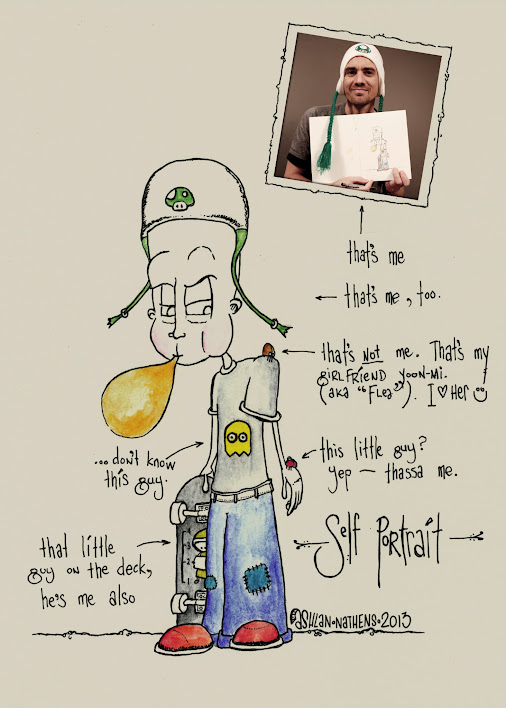 that's me
that's me, too.
that's NOT me. That's my
GIRLFRIEND YOON-MI.
(aka "Flea"). I ♡ Her ☺
...don't know
this guy.
this little guy?
yep — thassa me.
that little
guy on the deck,
he's me also
Self Portrait
@ASHLAN•NATHENS•2013